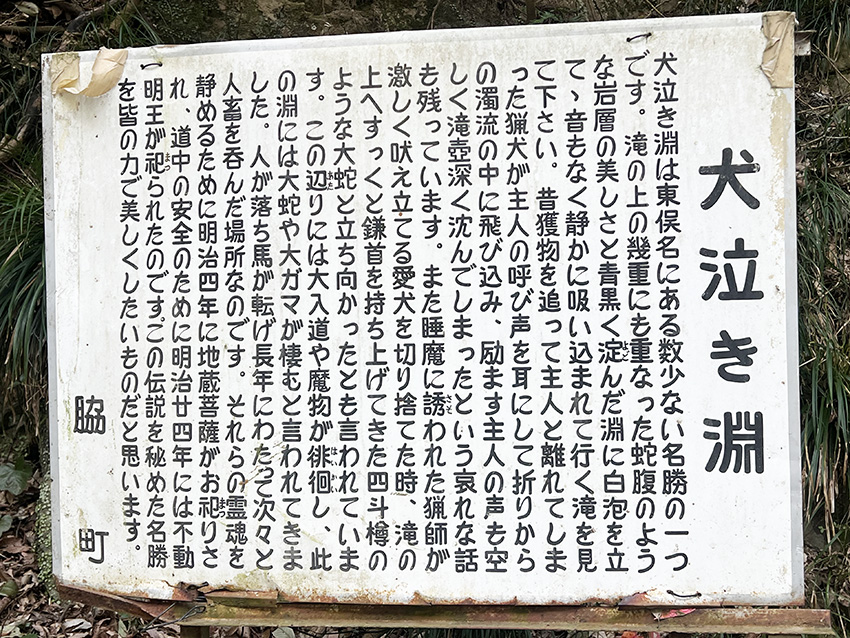 犬泣き淵
犬泣き淵は東俣名にある数少ない名勝の一つ
です。滝の上の幾重にも重なった蛇腹のよう
な岩層の美しさと青黒く淀んだ淵に白泡を立
て、音もなく静かに吸い込まれて行く滝を見
て下さい。昔獲物を追って主人と離れてしま
った猟犬が主人の呼び声を耳にして折りから
の濁流の中に飛び込み、励ます主人の声も空
しく滝壺深く沈んでしまったという哀れな話
も残っています。また睡魔に誘われた猟師が
激しく吠え立てる愛犬を切り捨てた時、滝の
上へすっくと鎌首を持ち上げてきた四斗樽の
ような大蛇と立ち向かったとも言われていま
す。この辺りには大入道や魔物が徘徊し、此
の淵には大蛇や大ガマが棲むと言われてきま
した。人が落ち馬が転げ長年にわたって次々と
人畜を呑んだ場所なのです。それらの霊魂を
静めるために明治四年に地蔵菩薩がお祀りさ
れ、道中の安全のために明治廿四年には不動
明王が祀られたのです。この伝説を秘めた名勝
を皆の力で美しくしたいものだと思います。
脇町